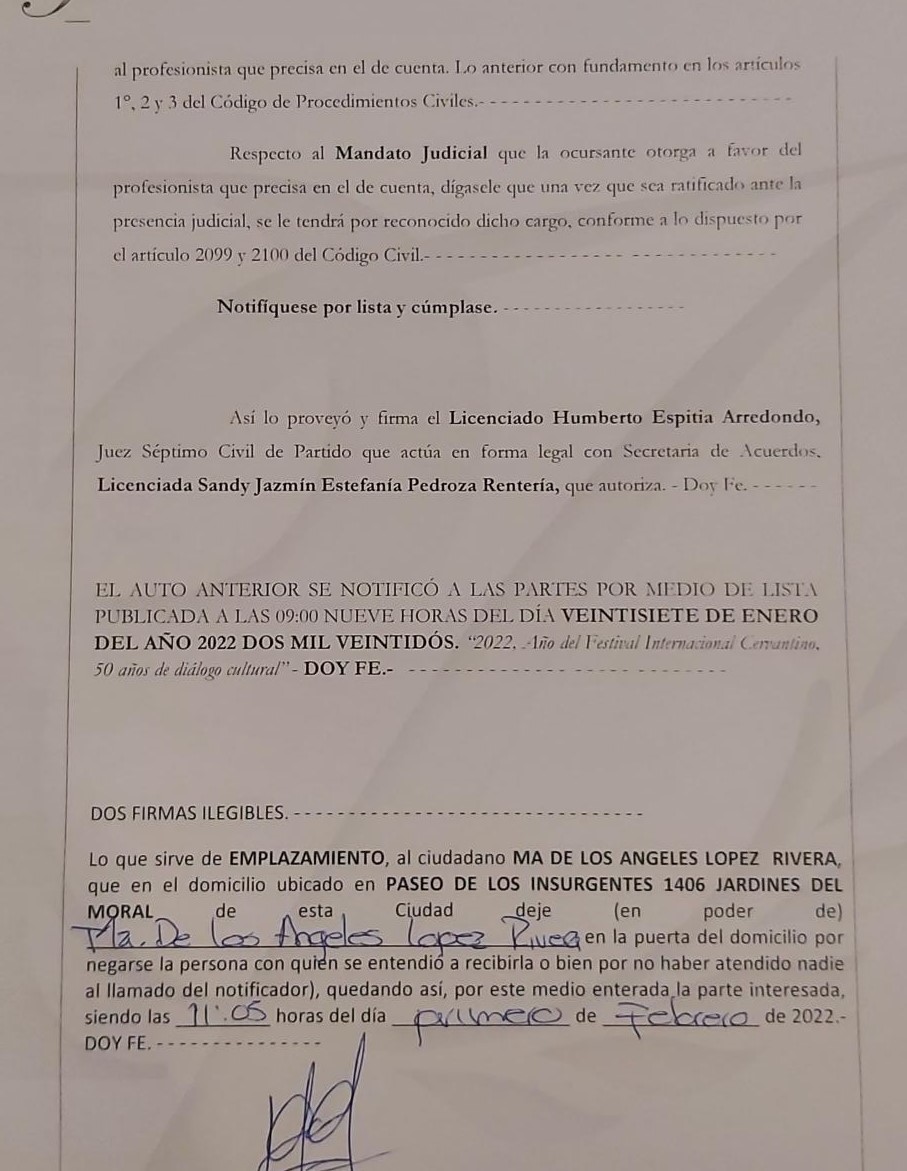 al profesionista que precisa en el de cuenta. Lo anterior con fundamento en los artículos
1º, 2 y 3 del Código de Procedimientos Civiles.- - - - - - - - - - - - - - - - - - - - - - - - - - -
Respecto al Mandato Judicial que la ocursante otorga a favor del
profesionista que precisa en el de cuenta, dígasele que una vez que sea ratificado ante la
presencia judicial, se le tendrá por reconocido dicho cargo, conforme a lo dispuesto por
el artículo 2099 y 2100 del Código Civil.- - - - - - - - - - - - - - - - - - - - - - - - - - - - - -
Notifíquese por lista y cúmplase. - - - - - - - - - - - - - - - -
Así lo proveyó y firma el Licenciado Humberto Espitia Arredondo,
Juez Séptimo Civil de Partido que actúa en forma legal con Secretaria de Acuerdos,
Licenciada Sandy Jazmín Estefanía Pedroza Rentería, que autoriza. - Doy Fe. - - - - - -
EL AUTO ANTERIOR SE NOTIFICÓ A LAS PARTES POR MEDIO DE LISTA
PUBLICADA A LAS 09:00 NUEVE HORAS DEL DÍA VEINTISIETE DE ENERO
DEL AÑO 2022 DOS MIL VEINTIDÓS. "2022, Año del Festival Internacional Cervantino,
50 años de diálogo cultural" - DOY FE.- - - - - - - - - - - - - - - - - - - - - - - - - - -
DOS FIRMAS ILEGIBLES. - - - - - - - - - - - - - - - - - - - - - - - - - - - - - - -
Lo que sirve de EMPLAZAMIENTO, al ciudadano MA DE LOS ANGELES LOPEZ RIVERA,
que en el domicilio ubicado en PASEO DE LOS INSURGENTES 1406 JARDINES DEL
MORAL de esta Ciudad deje (en poder de)
Ma. De los Angeles Lopez Rivera en la puerta del domicilio por
negarse la persona con quien se entendió a recibirla o bien por no haber atendido nadie
al llamado del notificador), quedando así, por este medio enterada la parte interesada,
siendo las 11:05 horas del día primero de Febrero de 2022.-
DOY FE. - - - - - - - - - - - - - - -